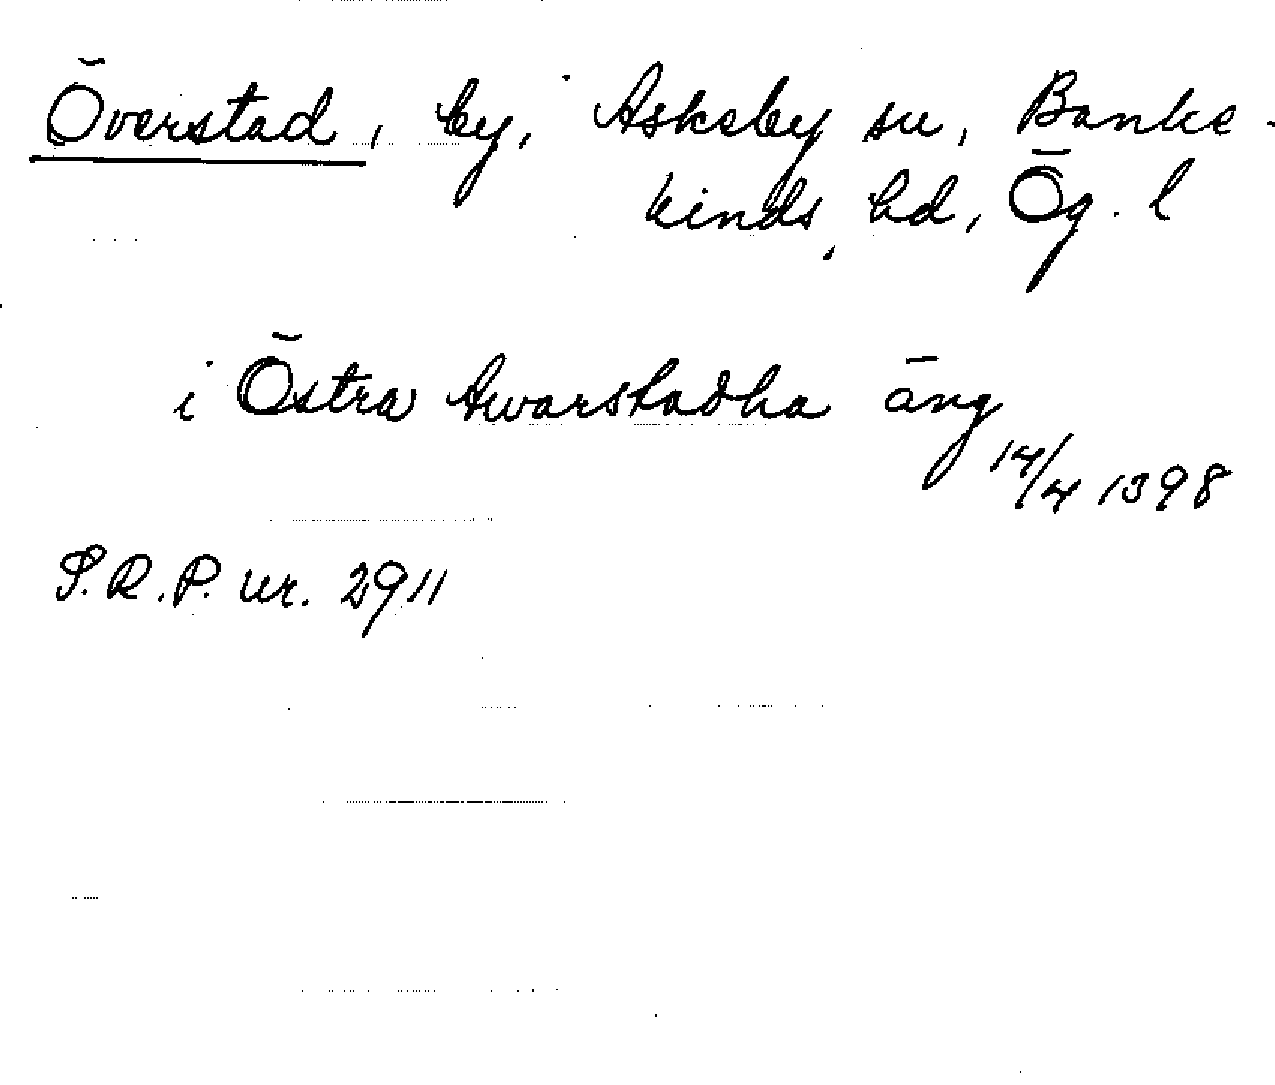 Överstad, by, Askeby sn, Banke-
kinds hd, Ög. l
i Östra Awarstadha äng
14/4 1398
S.R.P. nr. 2911